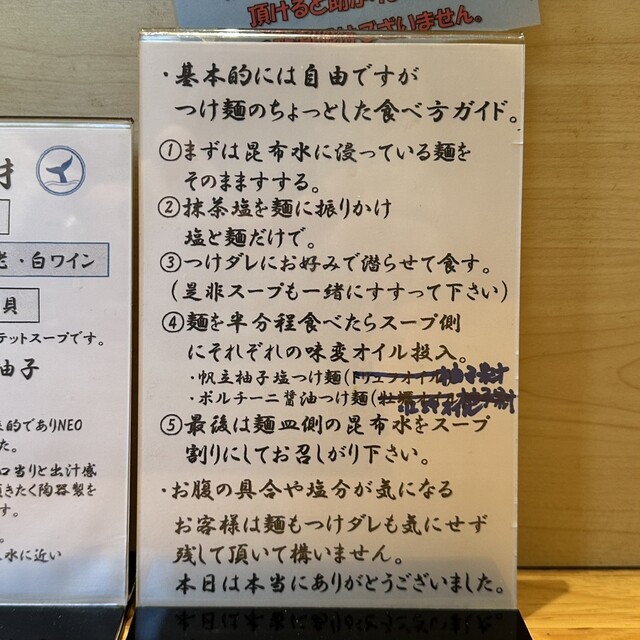 頂けると助か
ございません。
・基本的には自由ですが
つけ麺のちょっとした食べ方ガイド。
①まずは昆布水に浸っている麺を
そのまますする。
②抹茶塩を麺に振りかけ
塩と麺だけで。
③つけダレにお好みで潜らせて食す。
(是非スープも一緒にすすって下さい)
④麺を半分程食べたらスープ側
にそれぞれの味変オイル投入。
・帆立柚子塩つけ麺(トリュフオイル
・ポルチーニ醤油つけ麺(牡蠣オイル
⑤最後は麺皿側の昆布水をスープ
割りにしてお召しがり下さい。
・お腹の具合や塩分が気になる
お客様は麺もつけダレも気にせず
残して頂いて構いません。
本日は本当にありがとうございました。
・白ワイン
貝
テットスープです。
柚子
的でありNEO
た。
口当りと出汁感
頂きたく陶器製を
す。
水に近い